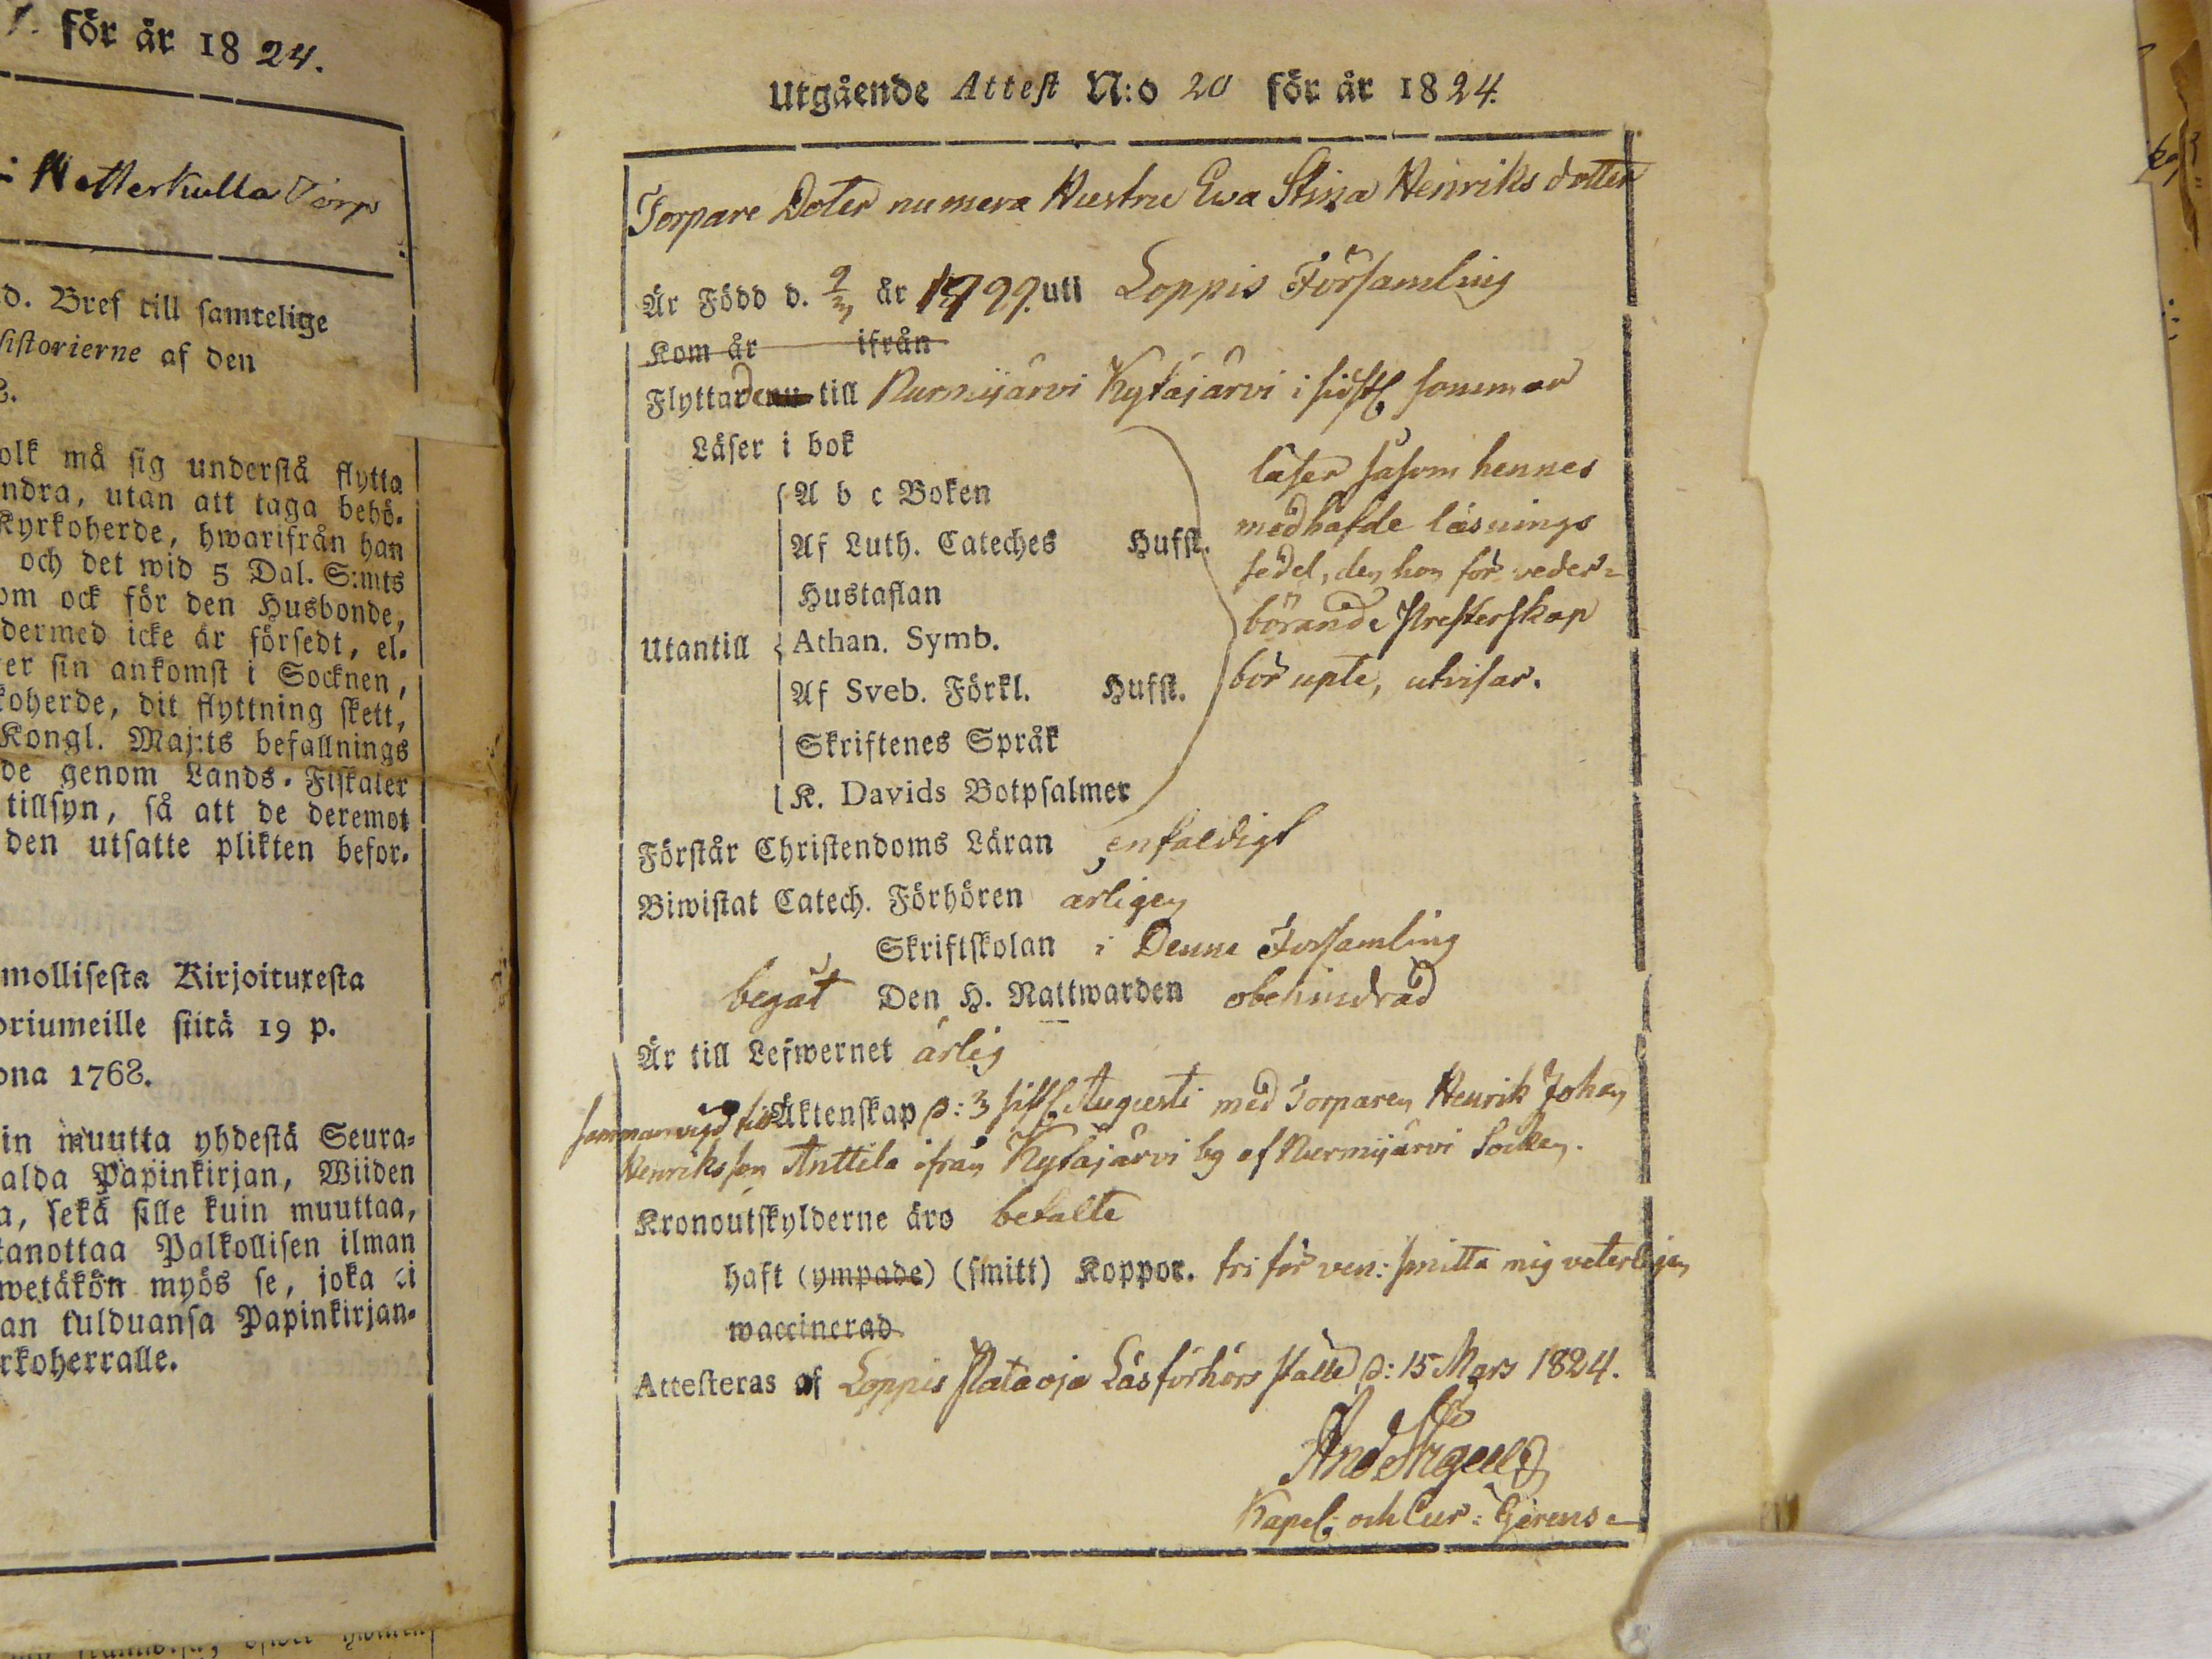 för år 1824.
Wetterkulla Torp
d. Bref till samtelige
sistorierne af den
olk må sig understå flytta
ndra, utan att taga behö-
Kyrkoherde, hwarifrån han
och det wid 5 Dal. S:mts
om ock för den Husbonde,
dermed icke är försedt, el-
er sin ankomst i Socknen,
koherde, dit flyttning skett,
Kongl. Maj:ts befallnings
de genom Lands-Fiskaler
tillsyn, så att de deremot
den utsatte plikten befor-
mollisesta Kirjoituxesta
oriumeille siitä 19 p.
ona 1768.
in muutta yhdestä Seura-
alda Papinkirjan, Wiiden
a, sekä sille kuin muuttaa,
tanottaa Palkollisen ilman
wetäkön myös se, joka ei
an tulduansa Papinkirjan-
rkoherralle.
Utgående Attest N:o 20 för år 1824.
Torpare Doter numera Hustru Ewa Stina Henriksdotter
Är Född d. 9/3 år 1799. uti Loppis Församling
Kom år ifrån
Flyttade till Nurmijärvi Kytäjärvi i sidstl sommar
Läser i bok
A b c Boken
Af Luth. Cateches Hufst.
Hustaflan
Utantill Athan. Symb.
Af Sveb. Förkl. Hufst.
Skriftenes Språk
K. Davids Botpsalmer
läser såsom hennes
medhafde läsnings
sedel, den hon för veder-
börande Presterskap
bör upte, utvisar.
Förstår Christendoms Läran enfaldigt
Biwistat Catech. Förhören årligen
Skriftskolan i Denne Församling
begåt Den H. Nattwarden obehindrad
Är till Lefwernet ärlig
sammanvigd til Äktenskap d: 3 sistl Augusti med Torparen Henrik Johan
Henriksson Anttila ifrån Kytäjärvi by af Nurmijärvi Socken.
Kronoutskylderne äro betalte
haft (ympade) (smitt) Koppor. fri för ven: smitta mig veterligen
waccinerad
Attesteras af Loppis Läsförhörs ställe d: 15 Mars 1824.
Kapel: och Cur: Gerens